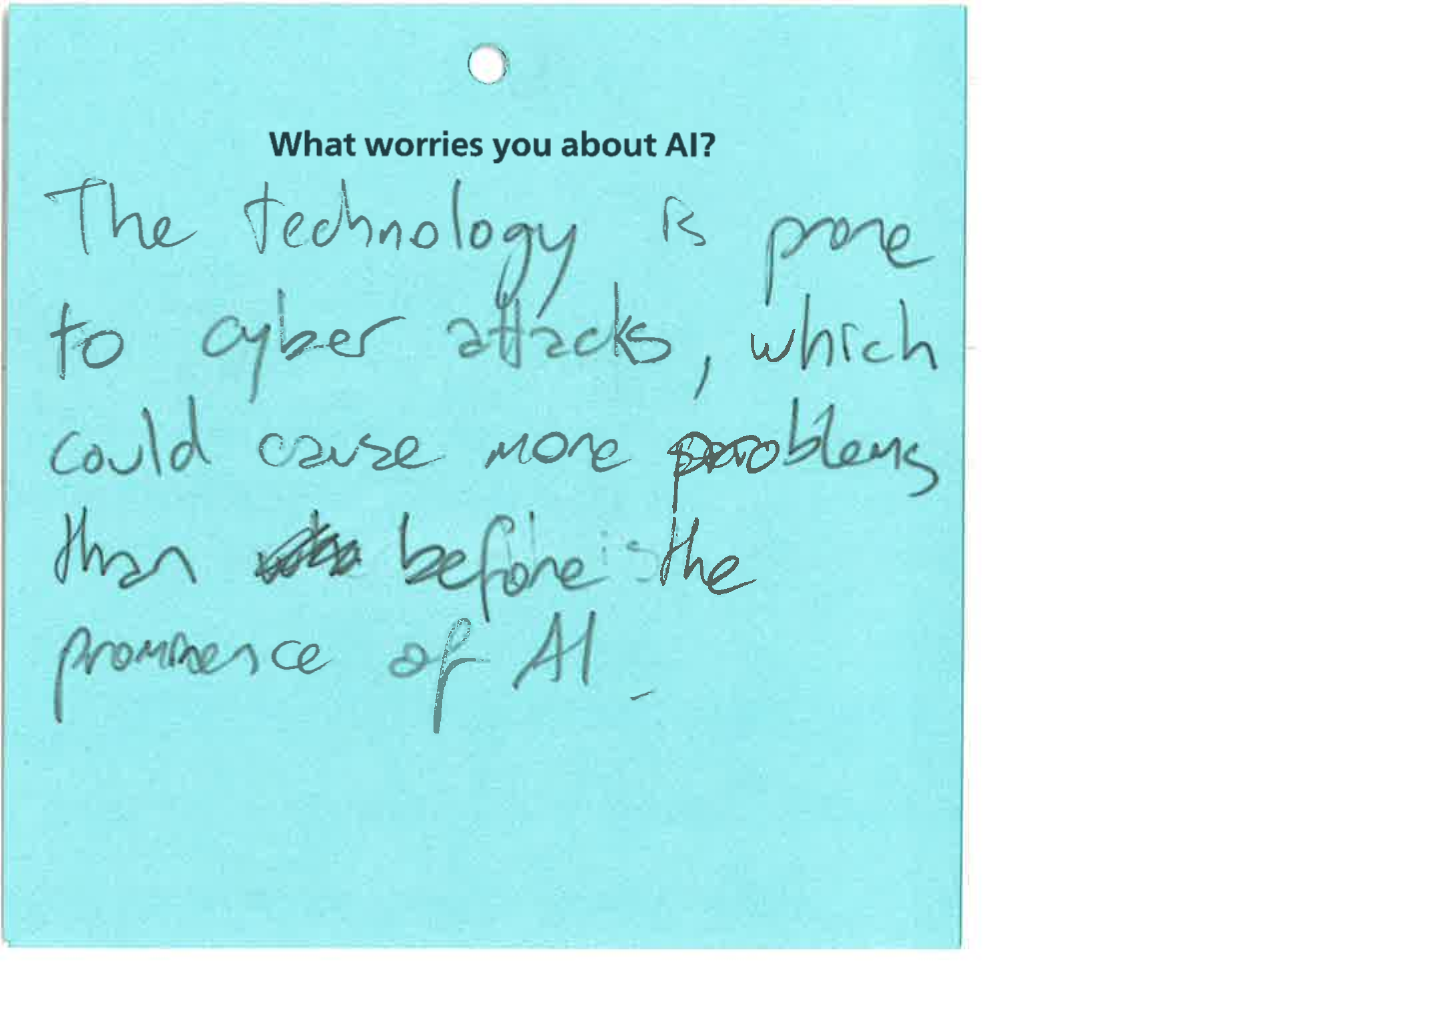 What worries you about AI?
The technology is prone
to cyber attacks, which
could cause more problems
than before the
prominence of AI.